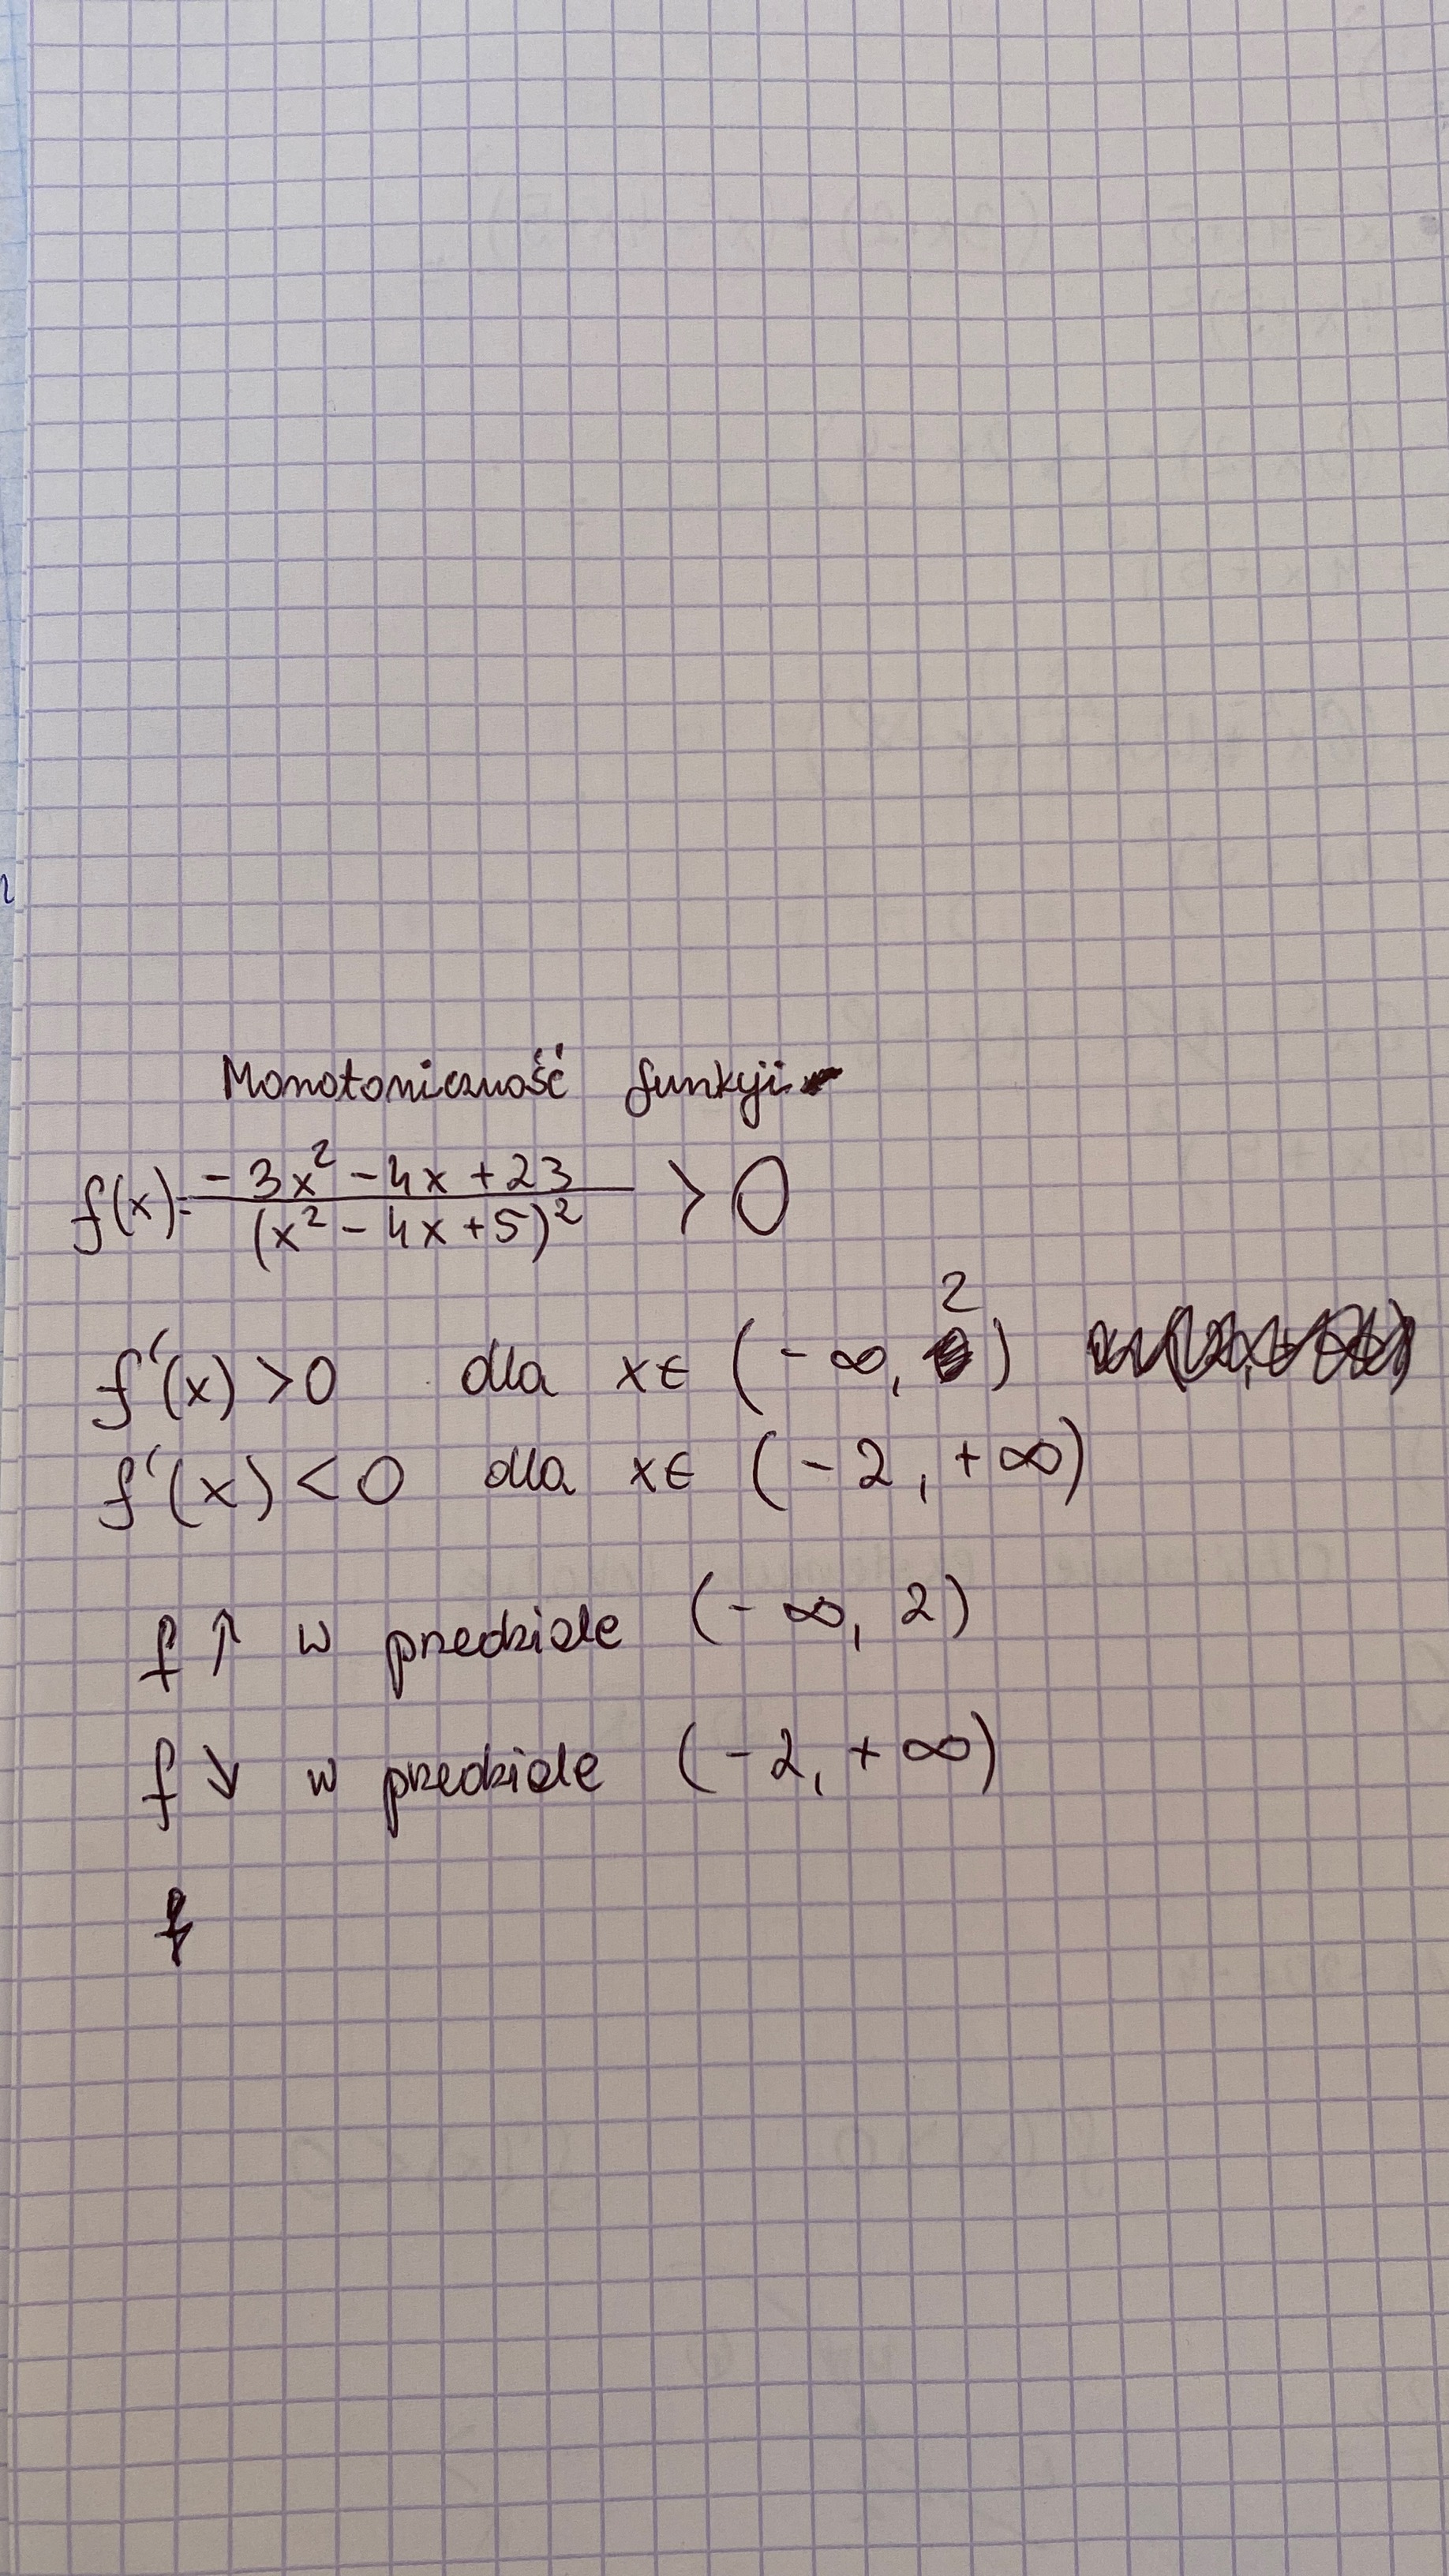 Monotoniczność funkyji
f(x)= -3x² - 4x + 23 / (x² - 4x + 5)² > 0
f'(x) > 0 dla x∈ (-∞, 2)
f'(x) < 0 dla x∈ (-2, +∞)
f ↑ w przedziale (-∞, 2)
f ↘ w przedziale (-2, +∞)
f